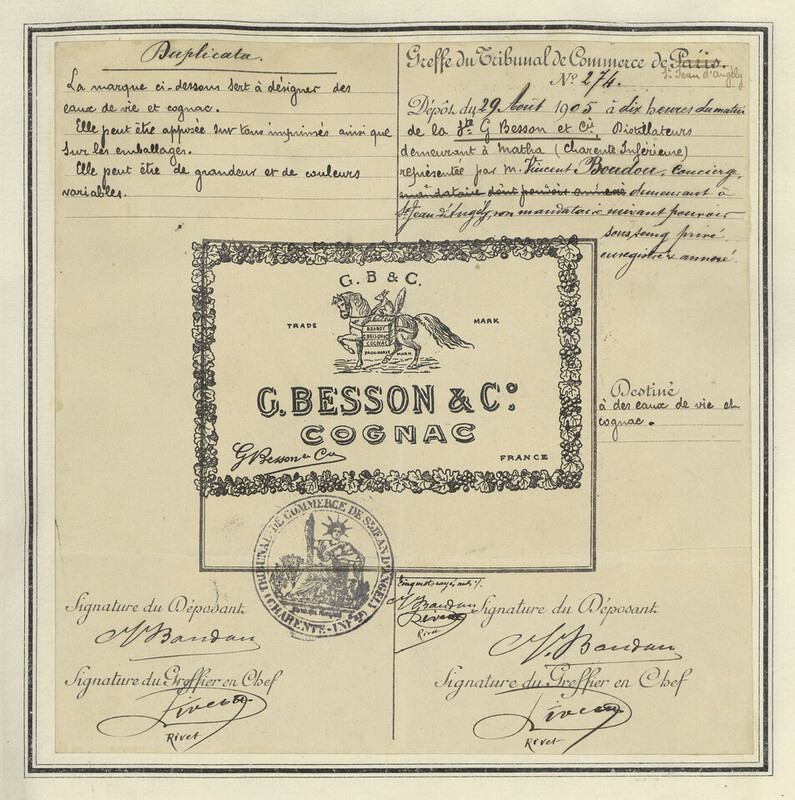 Duplicata.
La marque ci-dessous sert à désigner des
eaux de vie et cognac.
Elle peut être apposée sur tous imprimés ainsi que
sur les emballages.
Elle peut être de grandeur et de couleurs
variables.
Greffe du Tribunal de Commerce de Paris.
St Jean d'Angély
No 274.
Dépôt du 29 Août 1905 à dix heures du matin
de la Sté G Besson et Cie, Distillateurs
demeurant à Matha (Charente Inférieure)
représentée par M. Vincent Boudou, concierge,
mandataire dont pouvoir demeurant à
St Jean d'Angély, son mandataire suivant pouvoir
sous seing privé
enregistré & annexé.
G. B & C.
TRADE MARK
BRANDY
G. BESSON & Co
COGNAC
MARK
G. BESSON & Co
COGNAC
G Besson & Cie
FRANCE
Destiné
à des eaux de vie et
cognac.
TRIBUNAL DE COMMERCE DE ST JEAN D'ANGELY
(CHARENTE-INFRE)
Cinq mots rayés nuls
V Boudou
Rivet
Signature du Déposant
V Boudou
Signature du Greffier en Chef
Rivet
Rivet
Signature du Déposant
V. Boudou
Signature du Greffier en Chef
Rivet
Rivet